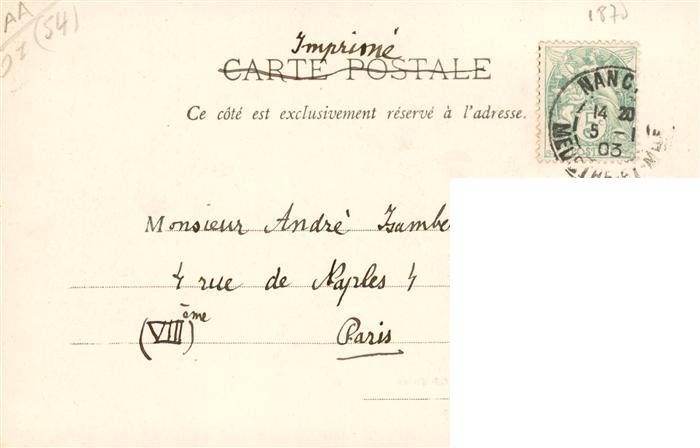 AA
(54)
1870
Imprimé
CARTE POSTALE
Ce côté est exclusivement réservé à l'adresse.
NANC
14 20
5 - 1
03
Monsieur André
4 rue de Naples 4
(VIII ème)
Paris